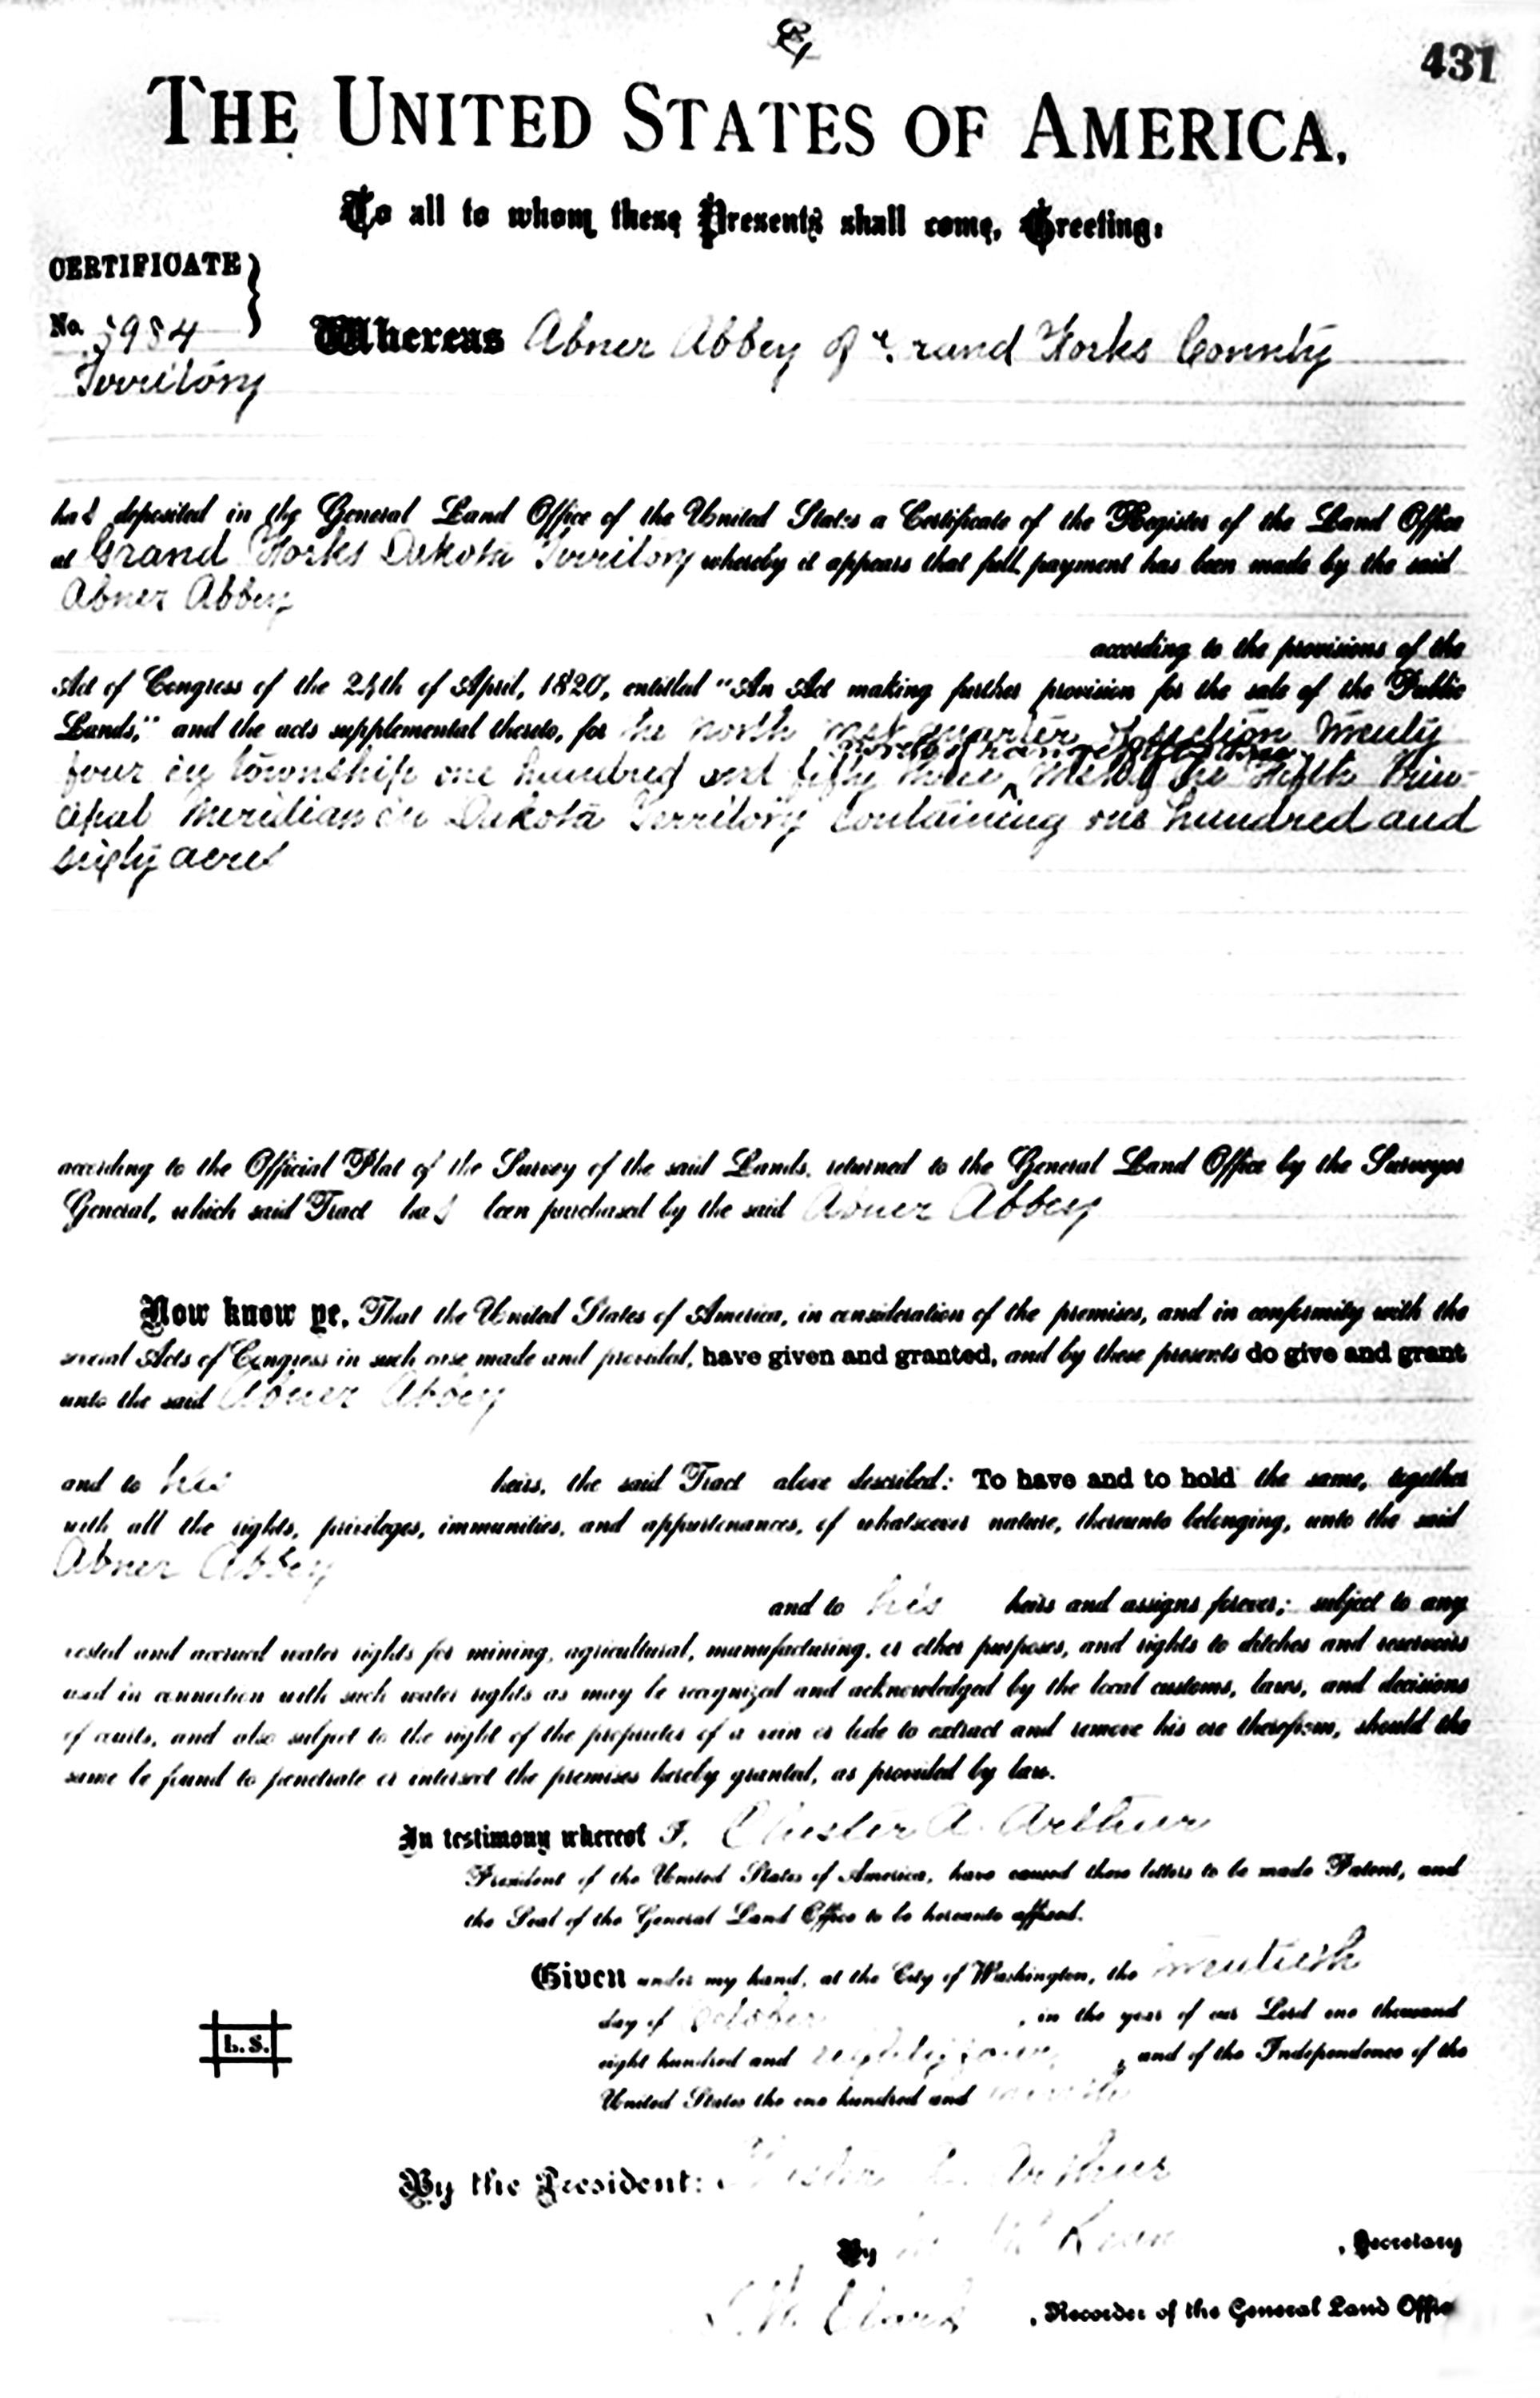 431
THE UNITED STATES OF AMERICA,
To all to whom these Presents shall come, Greeting:
CERTIFICATE
No. 5984
Whereas Abner Abbey of Grand Forks County
Territory
has deposited in the General Land Office of the United States a Certificate of the Register of the Land Office
at Grand Forks Dakota Territory whereby it appears that full payment has been made by the said
Abner Abbey
according to the provisions of the
Act of Congress of the 24th of April, 1820, entitled "An Act making further provision for the sale of the Public
Lands," and the acts supplemental thereto, for the north quarter of section twenty
four in township one hundred and fifty three of the Fifth Prin-
cipal Meridian in Dakota Territory containing one hundred and
sixty acres
according to the Official Plat of the Survey of the said Lands, returned to the General Land Office by the Surveyor
General, which said Tract has been purchased by the said Abner Abbey
Now know ye, That the United States of America, in consideration of the premises, and in conformity with the
several Acts of Congress in such case made and provided, have given and granted, and by these presents do give and grant
unto the said Abner Abbey
and to his heirs, the said Tract above described: To have and to hold the same, together
with all the rights, privileges, immunities, and appurtenances, of whatsoever nature, thereunto belonging, unto the said
Abner Abbey
and to his heirs and assigns forever; subject to any
vested and accrued water rights for mining, agricultural, manufacturing, or other purposes, and rights to ditches and reservoirs
used in connection with such water rights as may be recognized and acknowledged by the local customs, laws, and decisions
of courts, and also subject to the right of the proprietor of a vein or lode to extract and remove his ore therefrom, should the
same be found to penetrate or intersect the premises hereby granted, as provided by law.
In testimony whereof I, Chester A. Arthur
President of the United States of America, have caused these letters to be made Patent, and
the Seal of the General Land Office to be hereunto affixed.
Given under my hand, at the City of Washington, the twentieth
day of October, in the year of our Lord one thousand
eight hundred and eighty four, and of the Independence of the
United States the one hundred and ninth
L. S.
By the President: Chester A. Arthur
By Secretary
, Recorder of the General Land Office